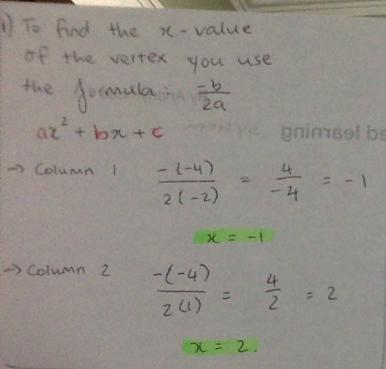 1) To find the x-value
of the vertex you use
the formula: -b/2a
ax² + bx + c
→ Column 1 -(-4)/2(-2) = 4/-4 = -1
x = -1
→ Column 2 -(-4)/2(1) = 4/2 = 2
x = 2.